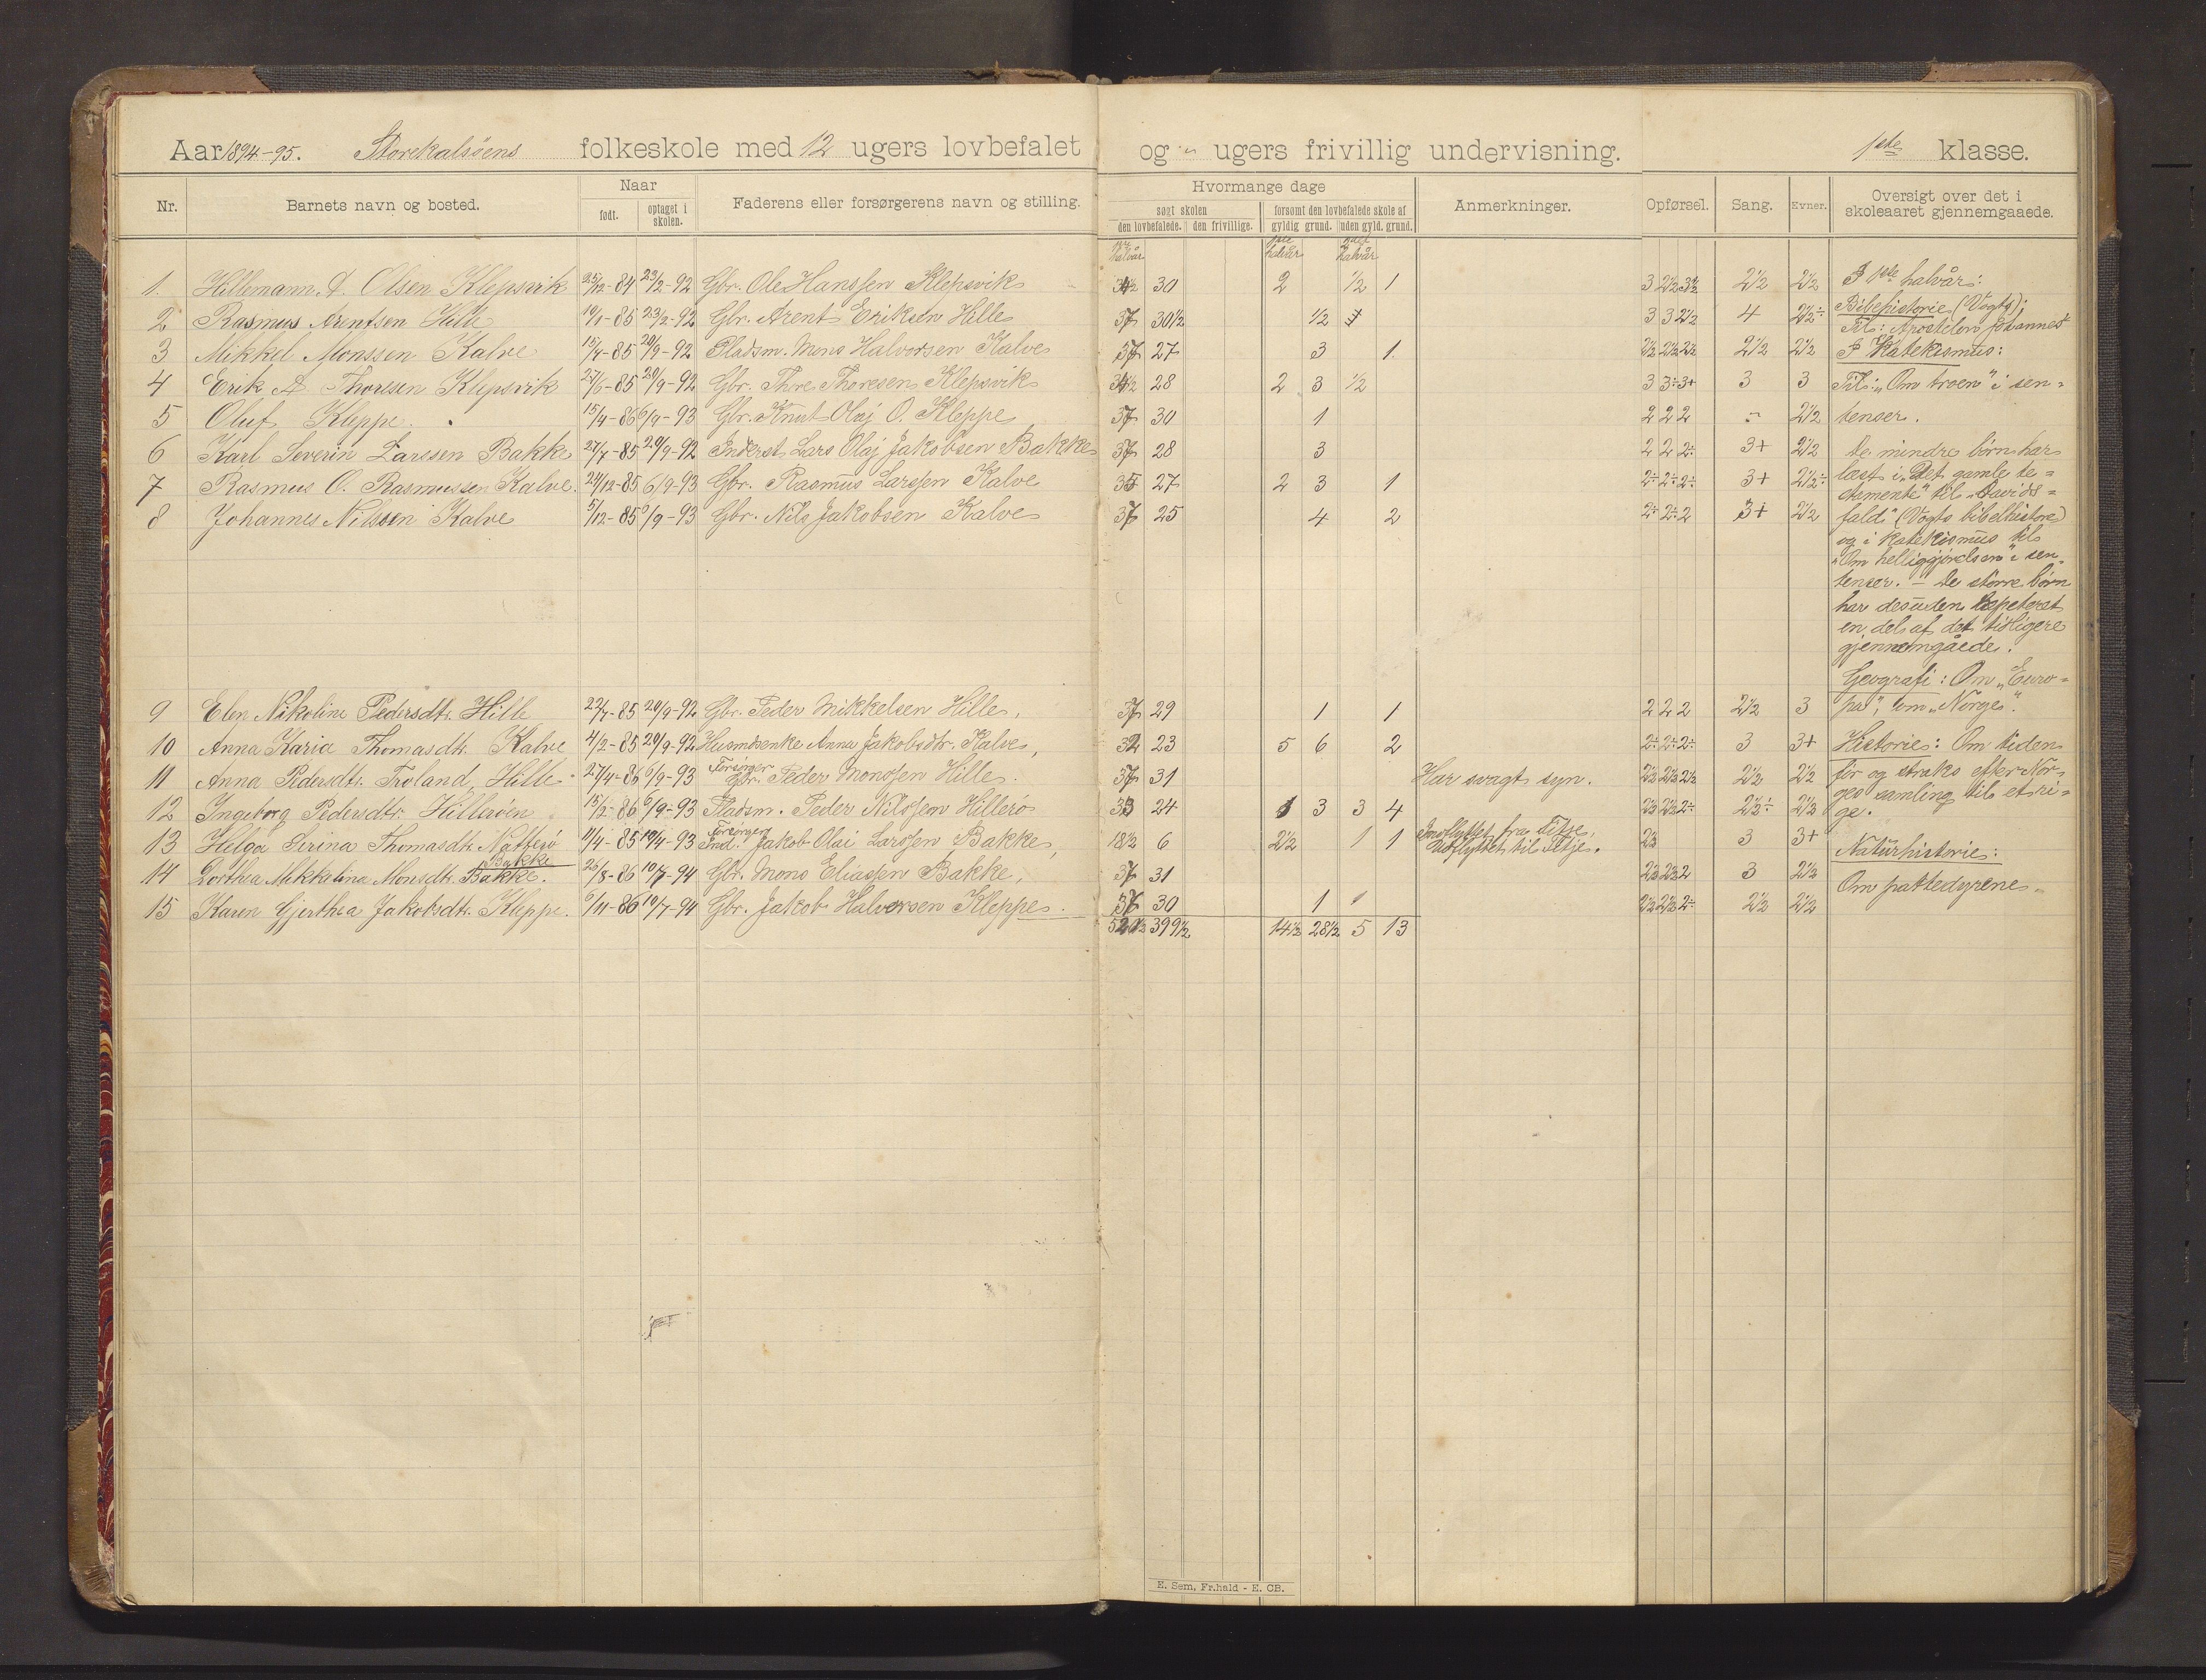 Aar 1894-95. Storekalsöens folkeskole med 12 ugers lovbefalet og " ugers frivillig undervisning. 1ste klasse.
Nr. Barnets navn og bosted. Naar født. optaget i skolen. Faderens eller forsørgerens navn og stilling. Hvormange dage søgt skolen den lovbefalede. den frivillige. forsømt den lovbefalede skole af gyldig grund. uden gyld. grund. Anmerkninger. Opførsel. Sang. Evner. Oversigt over det i skoleaaret gjennemgaaede.
1ste halvår 1ste halvår 1ste halvår
1. Hillemann A. Olsen Klepsvik 25/12-84 23/2-92 Gbr. Ole Hanssen Klepsvik 34½ 30 2 ½ 1 3 2½ 3½ 2½ 2½ I 1ste halvår:
2 Rasmus Arentsen Hille 19/1-85 23/2-92 Gbr. Arent Eriksen Hille 37 30½ ½ 3 3 2½ 4 2½÷ Bibelhistorie (Vogts);
Til: Apostelen Johannes
3 Mikkel Monssen Kalve 15/4-85 20/9-92 Pladsm. Mons Halvorsen Kalve 37 27 3 1 2½ 2½ 2½ 2½ 2½ I Katekismus:
4 Erik A Thorsen Klepsvik 27/6-85 20/9-92 Gbr. Thore Thoresen Klepsvik 34½ 28 2 3 ½ 3 3÷ 3+ 3 3 Til: "Om troen" i sen=
5 Oluf Kleppe. 15/4-86 6/9-93 Gbr. Knut Olaj O. Kleppe 37 30 1 2 2 2 - 2½ tenser.
6 Karl Severin Larssen Bakke 27/7-85 20/9-92 Inderst Lars Olaj Jakobsen Bakke 37 28 3 2 2 2÷ 3+ 2½ De mindre børn har
7 Rasmus O. Rasmussen Kalve. 24/12-85 6/9-93 Gbr. Rasmus Larssen Kalve 35 27 2 3 1 2÷ 2÷ 2÷ 3+ 2½÷ læst i "Det gamle te=
stamente" til "Davids=
8 Johannes Nilssen Kalve 5/12-85 6/9-93 Gbr. Nils Jakobsen Kalve 37 25 4 2 2÷ 2÷ 2 3+ 2½ fald" (Vogts bibelhistore)
og i katekismus til
"Om helliggjørelsen" i sen-
tenser. - De större børn
har desuden repeteret
en del af det tidligere
gjennemgåede.
Geografi: Om "Euro=
9 Elen Nikoline Pedersdtr. Hille 22/7-85 20/9-92 Gbr. Peder Mikkelsen Hille, 37 29 1 1 2 2 2 2½ 3 pa", om "Norge".
10 Anna Karia Thomasdtr. Kalve 4/2-85 20/9-92 Husmdsenke Anna Jakobsdtr. Kalve, 32 23 5 6 2 2÷ 2÷ 2÷ 3 3+ Historie: Om tiden
11 Anna Pedersdtr. Troland, Hille 27/4-86 6/9-93 Forsørger Gbr. Peder Monssen Hille. 37 31 Har svagt syn. 2½ 2½ 2½ 2½ 2½ før og straks efter Nor=
12 Ingeborg Pedersdtr. Hillerøen 15/2-86 6/9-93 Pladsm. Peder Nilssen Hillerö 33 24 1 3 3 4 2½ 2½ 2÷ 2½÷ 2½ ges samling til et ri=
ge.
13 Helga Serina Thomasdtr. Natterö Bakke 11/4-85 10/4-93 Forsørger Ind. Jakob Olai Larssen Bakke, 18½ 6 2½ 1 1 Indflyttet fra Fitje, Udflyttet til Fitje. 2½ 3 3+ Naturhistorie:
14 Dorthea Mikkaline Monsdtr. Bakke. 26/8-86 10/7-94 Gbr. Mons Eliassen Bakke, 37 31 2½ 2½ 2 3 2½ Om pattedyrene.
15 Karen Gjerthea Jakobsdtr. Kleppe. 6/11-86 10/7-94 Gbr. Jakob Halvorsen Kleppe. 36 30 1 1 2½ 2½ 2÷ 2½ 2½
520½ 399½ 14½ 28½ 5 13
E. Sem, Fr.hald - E. CB.